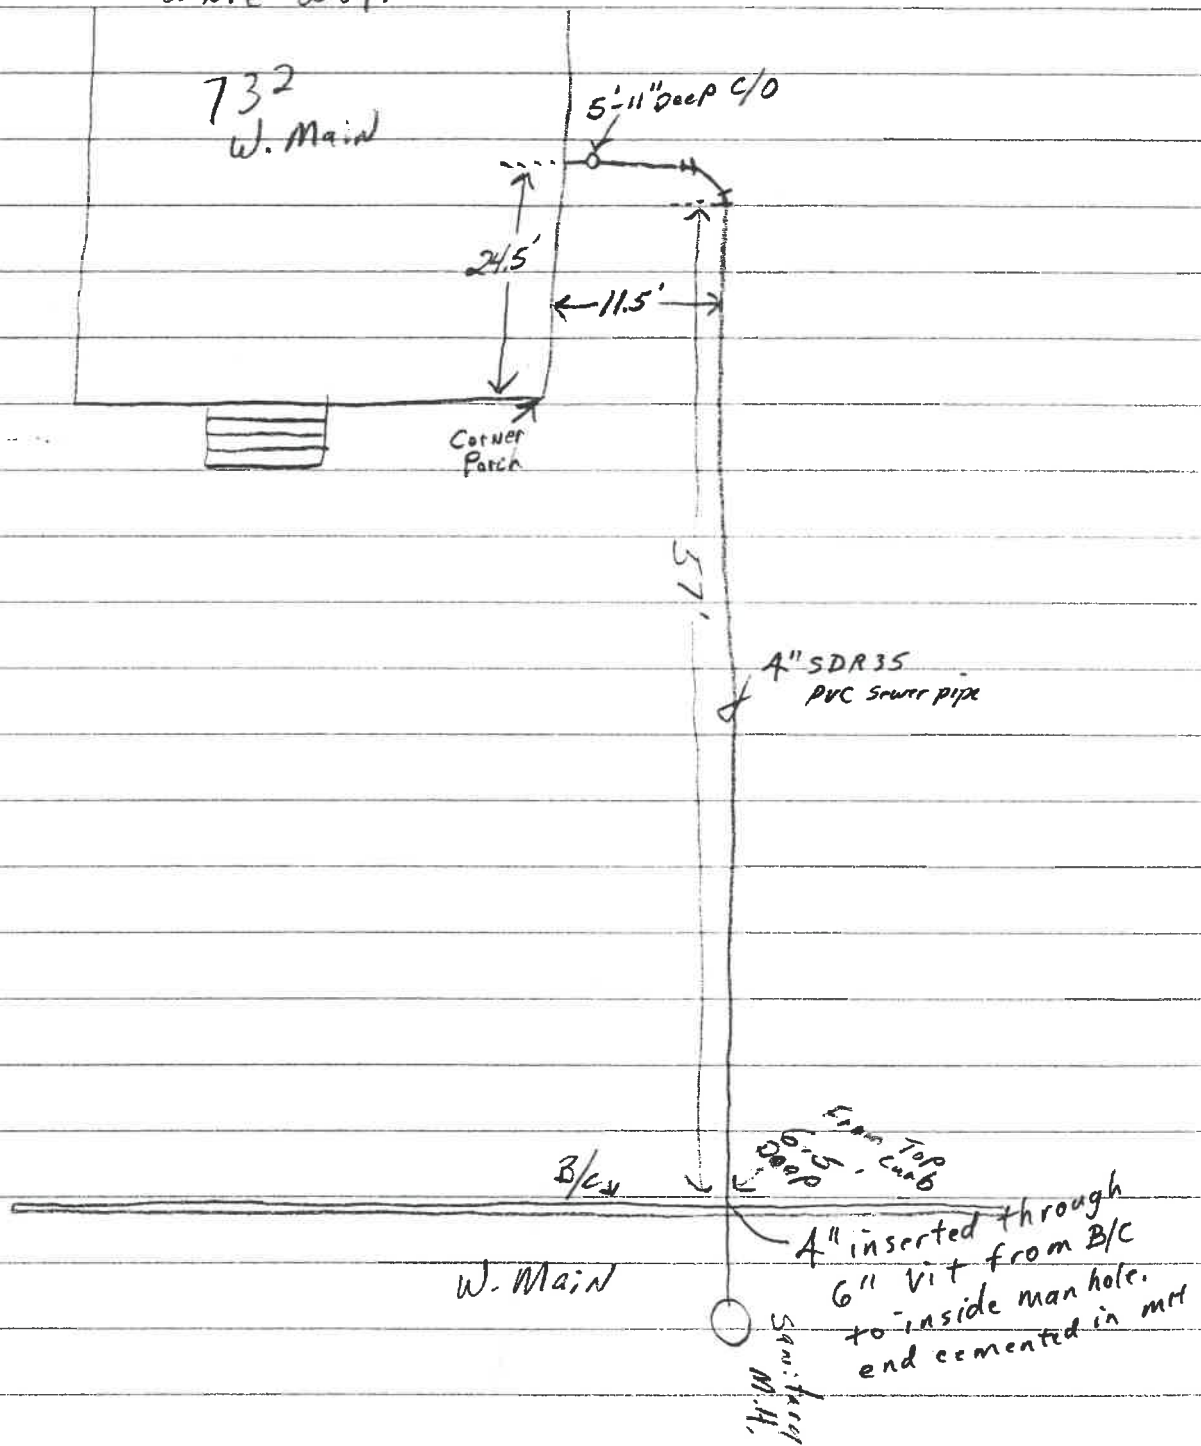 732
W. Main
5'-11" Deep C/O
24.5'
11.5'
Corner
Porch
57'
4" SDR35
PVC Sewer pipe
From Top
6.5' Curb
Deep
B/C
4" inserted through
6" Vit from B/C
to inside manhole.
end cemented in MH
W. Main
Sanitary
M.H.